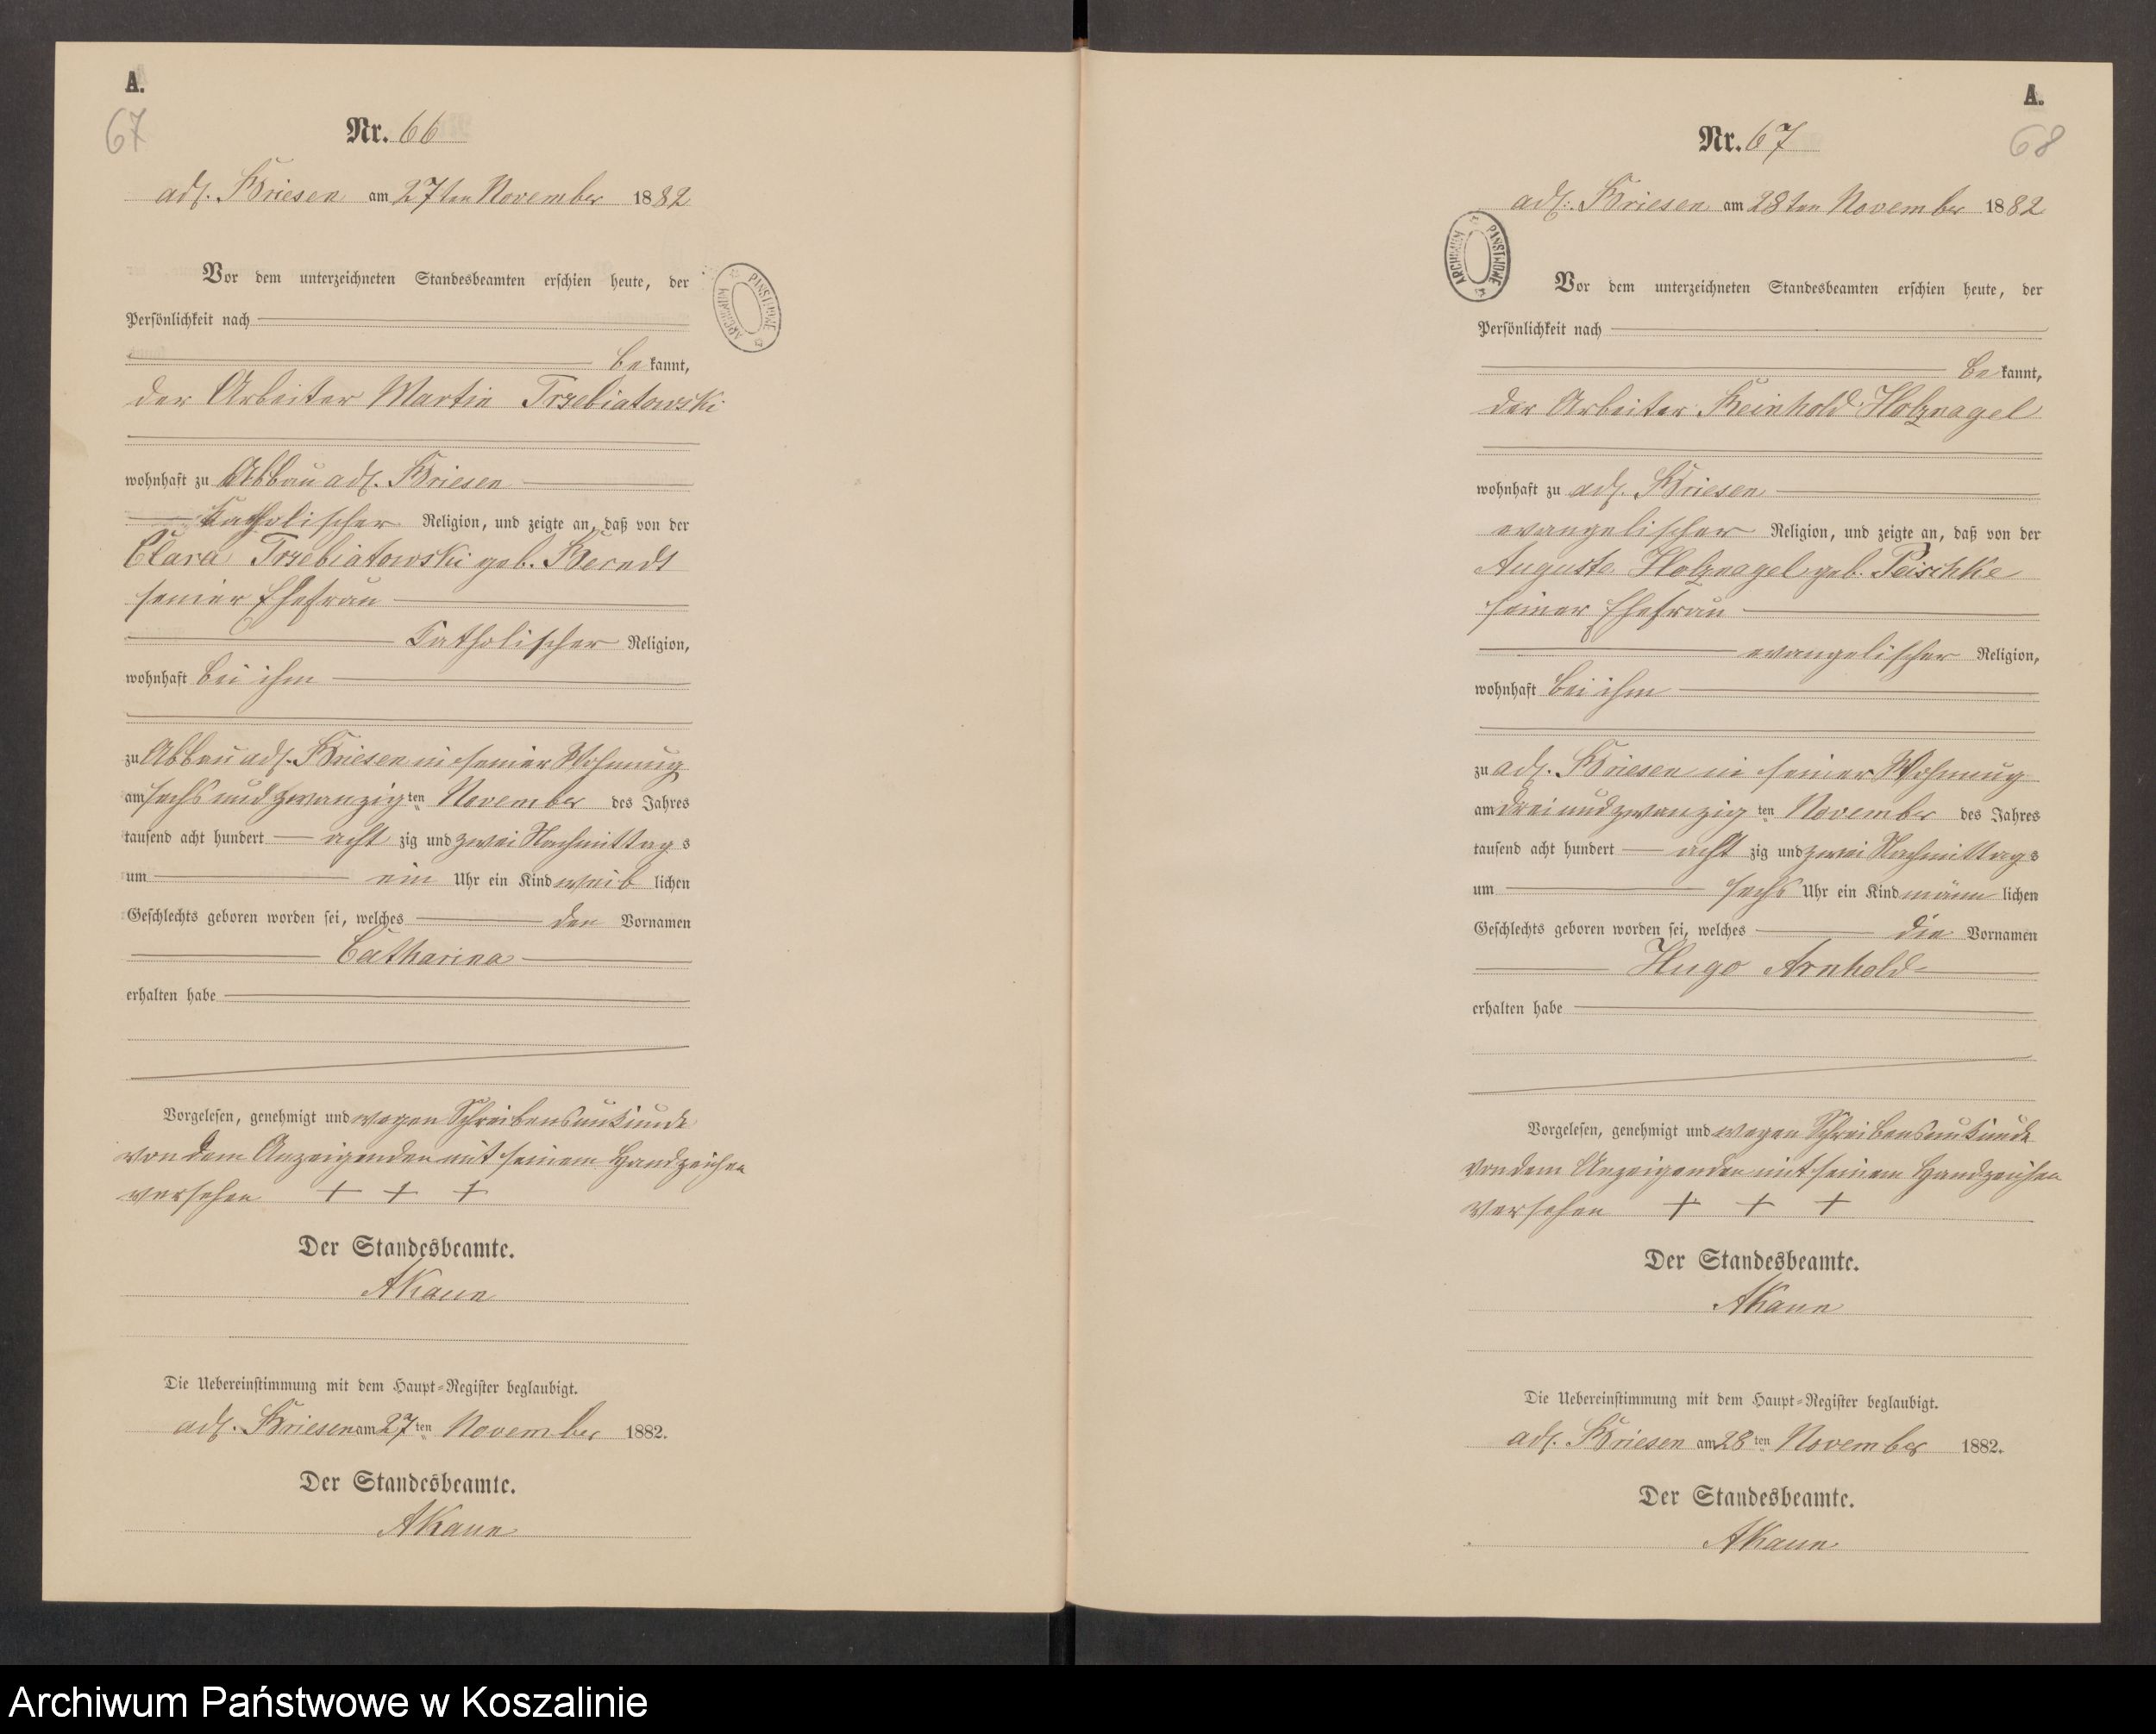 A.
67
Nr. 66
adl. Briesen am 27ten November 1882
Vor dem unterzeichneten Standesbeamten erschien heute, der
Persönlichkeit nach
be kannt,
der Arbeiter Martin Trzebiatowski
wohnhaft zu Abbau adl. Briesen
katholischer Religion, und zeigte an, daß von der
Clara Trzebiatowski geb. Berndt
seiner Ehefrau
katholischer Religion,
wohnhaft bei ihm
zu Abbau adl. Briesen in seiner Wohnung
am sechs und zwanzig ten November des Jahres
tausend acht hundert acht zig und zwei Nachmittag s
um ein Uhr ein Kind weib lichen
Geschlechts geboren worden sei, welches den Vornamen
Catharina
erhalten habe
Vorgelesen, genehmigt und wegen Schreibensunkunde
von dem Anzeigenden mit seinem Handzeichen
versehen + + +
Der Standesbeamte.
AKaun
Die Uebereinstimmung mit dem Haupt-Register beglaubigt.
adl. Briesen am 27 ten November 1882.
Der Standesbeamte.
AKaun
ARCHIWUM PAŃSTWOWE
A.
68
Nr. 67
adl. Briesen am 28ten November 1882
ARCHIWUM PAŃSTWOWE
Vor dem unterzeichneten Standesbeamten erschien heute, der
Persönlichkeit nach
be kannt,
der Arbeiter Reinhold Holznagel
wohnhaft zu adl. Briesen
evangelischer Religion, und zeigte an, daß von der
Auguste Holznagel geb. Peischke
seiner Ehefrau
evangelischer Religion,
wohnhaft bei ihm
zu adl. Briesen in seiner Wohnung
am drei und zwanzig ten November des Jahres
tausend acht hundert acht zig und zwei Nachmittag s
um sechs Uhr ein Kind männ lichen
Geschlechts geboren worden sei, welches die Vornamen
Hugo Arnhold
erhalten habe
Vorgelesen, genehmigt und wegen Schreibensunkunde
von dem Anzeigenden mit seinem Handzeichen
versehen + + +
Der Standesbeamte.
AKaun
Die Uebereinstimmung mit dem Haupt-Register beglaubigt.
adl. Briesen am 28 ten November 1882.
Der Standesbeamte.
AKaun
Archiwum Państwowe w Koszalinie